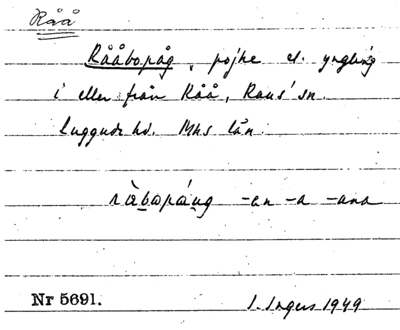 Råå
Rååbopåg, pojke el. yngling
i eller från Råå, Raus' sn.
Luggude hd. Mhs län.
ràbåpáug -an -a -ana
Nr 5691.
I. Ingers 1949